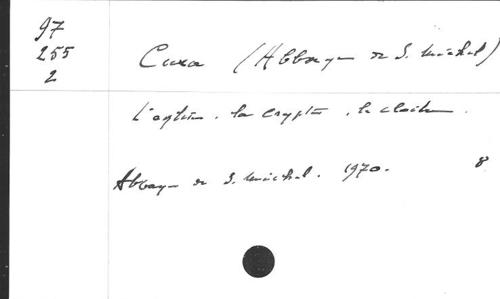 97
255
2
Cuxa (Abbaye de S. Michel)
L'église, la crypte, le cloître.
Abbaye de S. Michel. 1970. 8